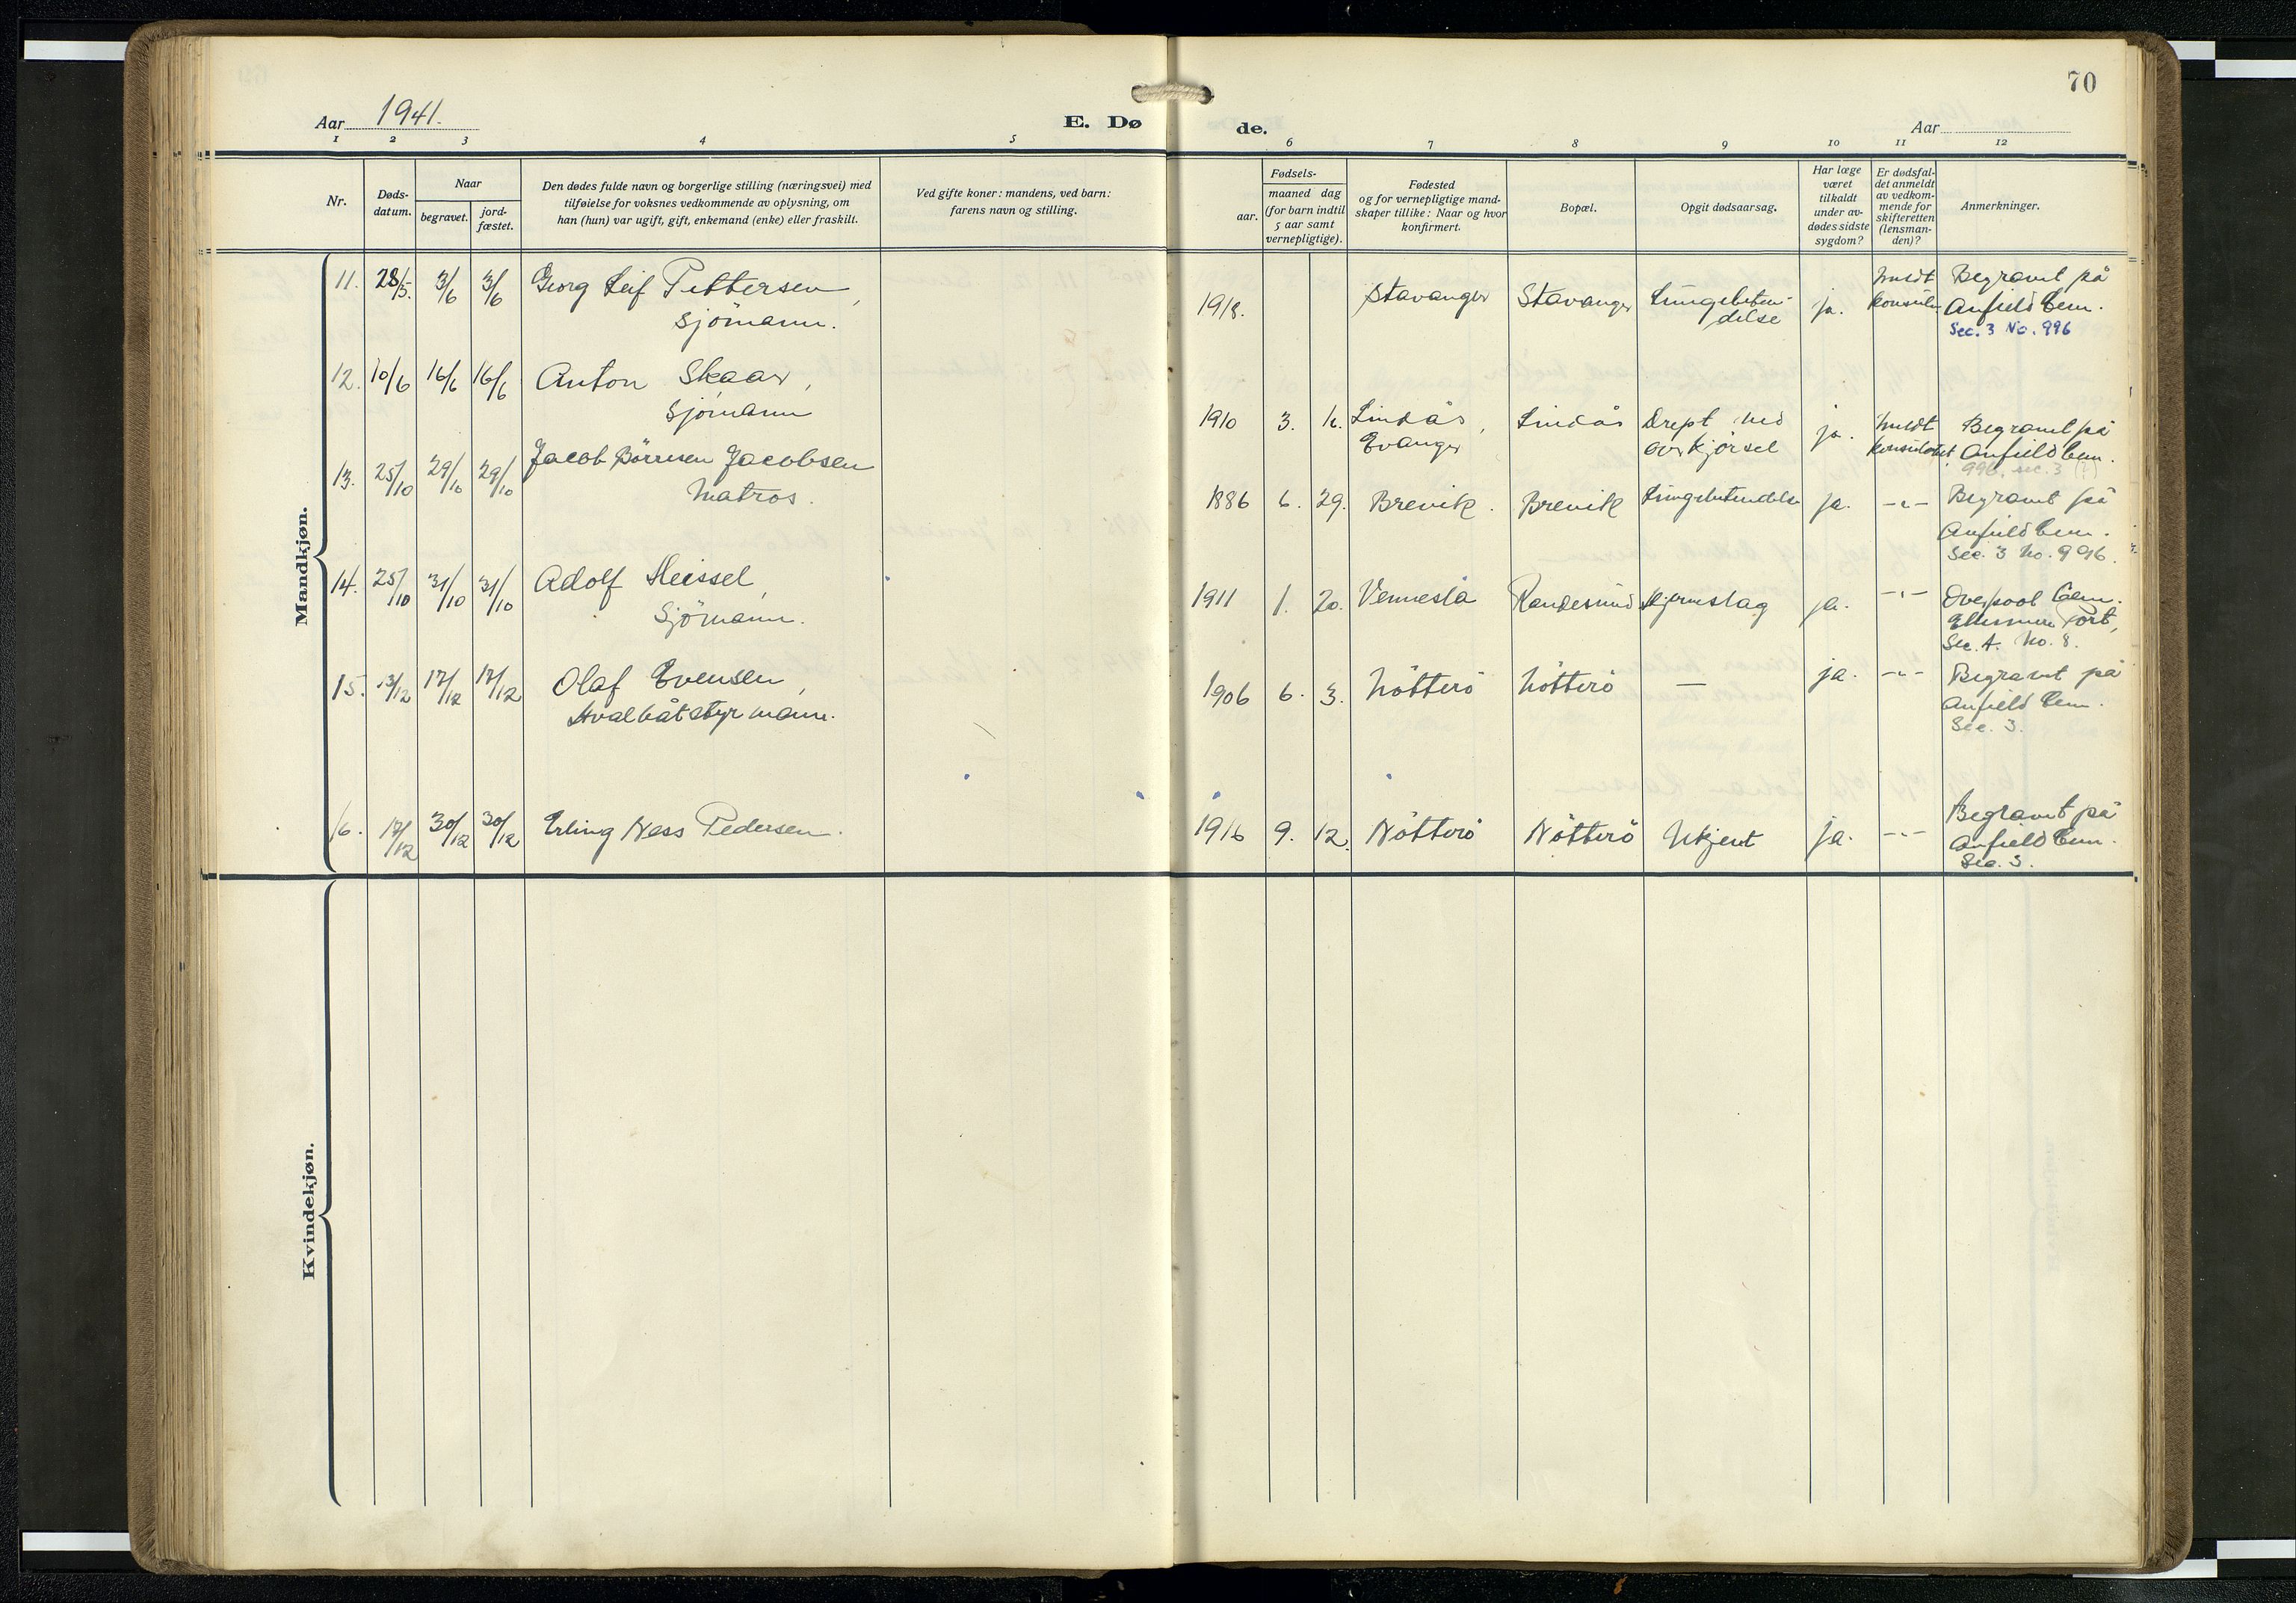 70
Aar 1941.
E. Dø
de.
Aar
1 2 3 4 5 6 7 8 9 10 11 12
Nr.
Døds-
datum.
Naar
begravet.
jord-
fæstet.
Den dødes fulde navn og borgerlige stilling (næringsvei) med
tilføielse for voksnes vedkommende av oplysning, om
han (hun) var ugift, gift, enkemand (enke) eller fraskilt.
Ved gifte koner: mandens, ved barn:
farens navn og stilling.
Fødsels-
aar.
maaned dag
(for barn indtil
5 aar samt
vernepligtige).
Fødested
og for vernepligtige mand-
skaper tillike: Naar og hvor
konfirmert.
Bopæl.
Opgit dødsaarsag.
Har læge
været
tilkaldt
under av-
dødes sidste
sygdom?
Er dødsfal-
det anmeldt
av vedkom-
mende for
skifteretten
(lensman-
den)?
Anmerkninger.
Mandkjøn.
11. 28/5. 3/6 3/6 Georg Leif Pettersen,
Sjömann.
1918. Stavanger Stavanger Lungebeten-
delse
ja.
meldt
Begravt på
Anfield Cem.
Sec. 3 No. 996
12. 10/6 16/6 16/6 Anton Skaar,
Sjömann
1910 3. Lindås, Lindås Drept ved
Evanger overkjörsel
ja.
meldt
konsulatet
Begravt på
Anfield Cem.
996. sec. 3 (?)
13. 25/10 29/10 29/10 Jacob Börresen Jacobsen
Matros.
1886 6. 29. Brevik. Brevik Lungebetendelse ja. -"- Begravt på
Anfield Cem.
Sec. 3 No. 996.
14. 25/10 31/10 31/10 Adolf Heissel,
Sjömann.
1911 1. 20. Vennesla Randesund Hjerneslag ja. -"- Overpool Cem.
Ellesmere Port,
Sec. A. No. 8.
15. 13/12 17/12 17/12 Olaf Evensen,
Hvalbåtstyrmann.
1906 6. 3. Nötterö Nötterö — ja. -"- Begravt på
Anfield Cem.
Sec. 3.
16. 17/12 30/12 30/12 Erling Ness Pedersen.
1916 9. 12. Nötterö Nötterö Ukjent ja. -"- Begravt på
Anfield Cem.
Sec. 3.
Kvindekjøn.